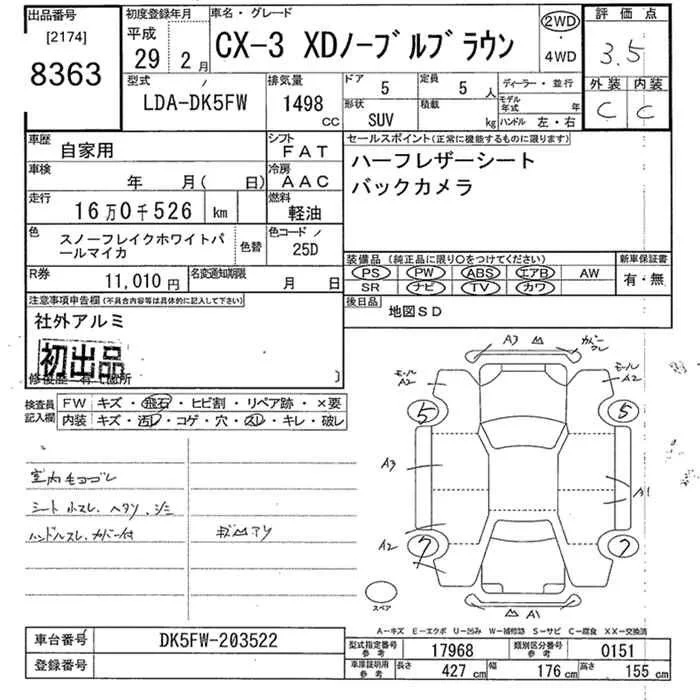 出品番号
[2174]
8363
初度登録年月
平成
29 2月
車名・グレード
CX-3 XDノーブルブラウン
2WD
・
4WD
評価点
3.5
外装 内装
C C
型式
LDA-DK5FW
排気量
1498
CC
ドア
5
定員
5人
形状
SUV
積載
kg
ディーラー・並行
モデル年式 年
ハンドル 左・右
車歴
自家用
シフト
FAT
車検
年 月( 日)
冷房
AAC
走行
16万0千526 km
燃料
軽油
色
スノーフレイクホワイトパールマイカ
色替
色コード
25D
R券
11,010円
名変通知期限
月 日
セールスポイント(正常に機能するものに限ります)
ハーフレザーシート
バックカメラ
装備品(純正品に限り○をつけてください)
PS PW ABS エアB AW
SR ナビ TV カワ
新車保証書
有・無
後日品
地図SD
注意事項申告欄(不具合内容等は具体的に記入して下さい)
社外アルミ
初出品
修復歴 有 箇所
検査員記入欄
FW キズ・飛石・ヒビ割・リペア跡・×要
内装 キズ・汚レ・コゲ・穴・スレ・キレ・破レ
シート
ハンドルスレ
A3
A2
A2
5
5
A3
A1
A2
7
7
A1
スペア
A-キズ E-エクボ U-凹み W-補修跡 S-サビ C-腐食 XX-交換済
車台番号
DK5FW-203522
登録番号
型式指定番号参考
17968
類別区分番号参考
0151
車庫証明用参考
長さ 427cm 幅 176cm 高さ 155cm